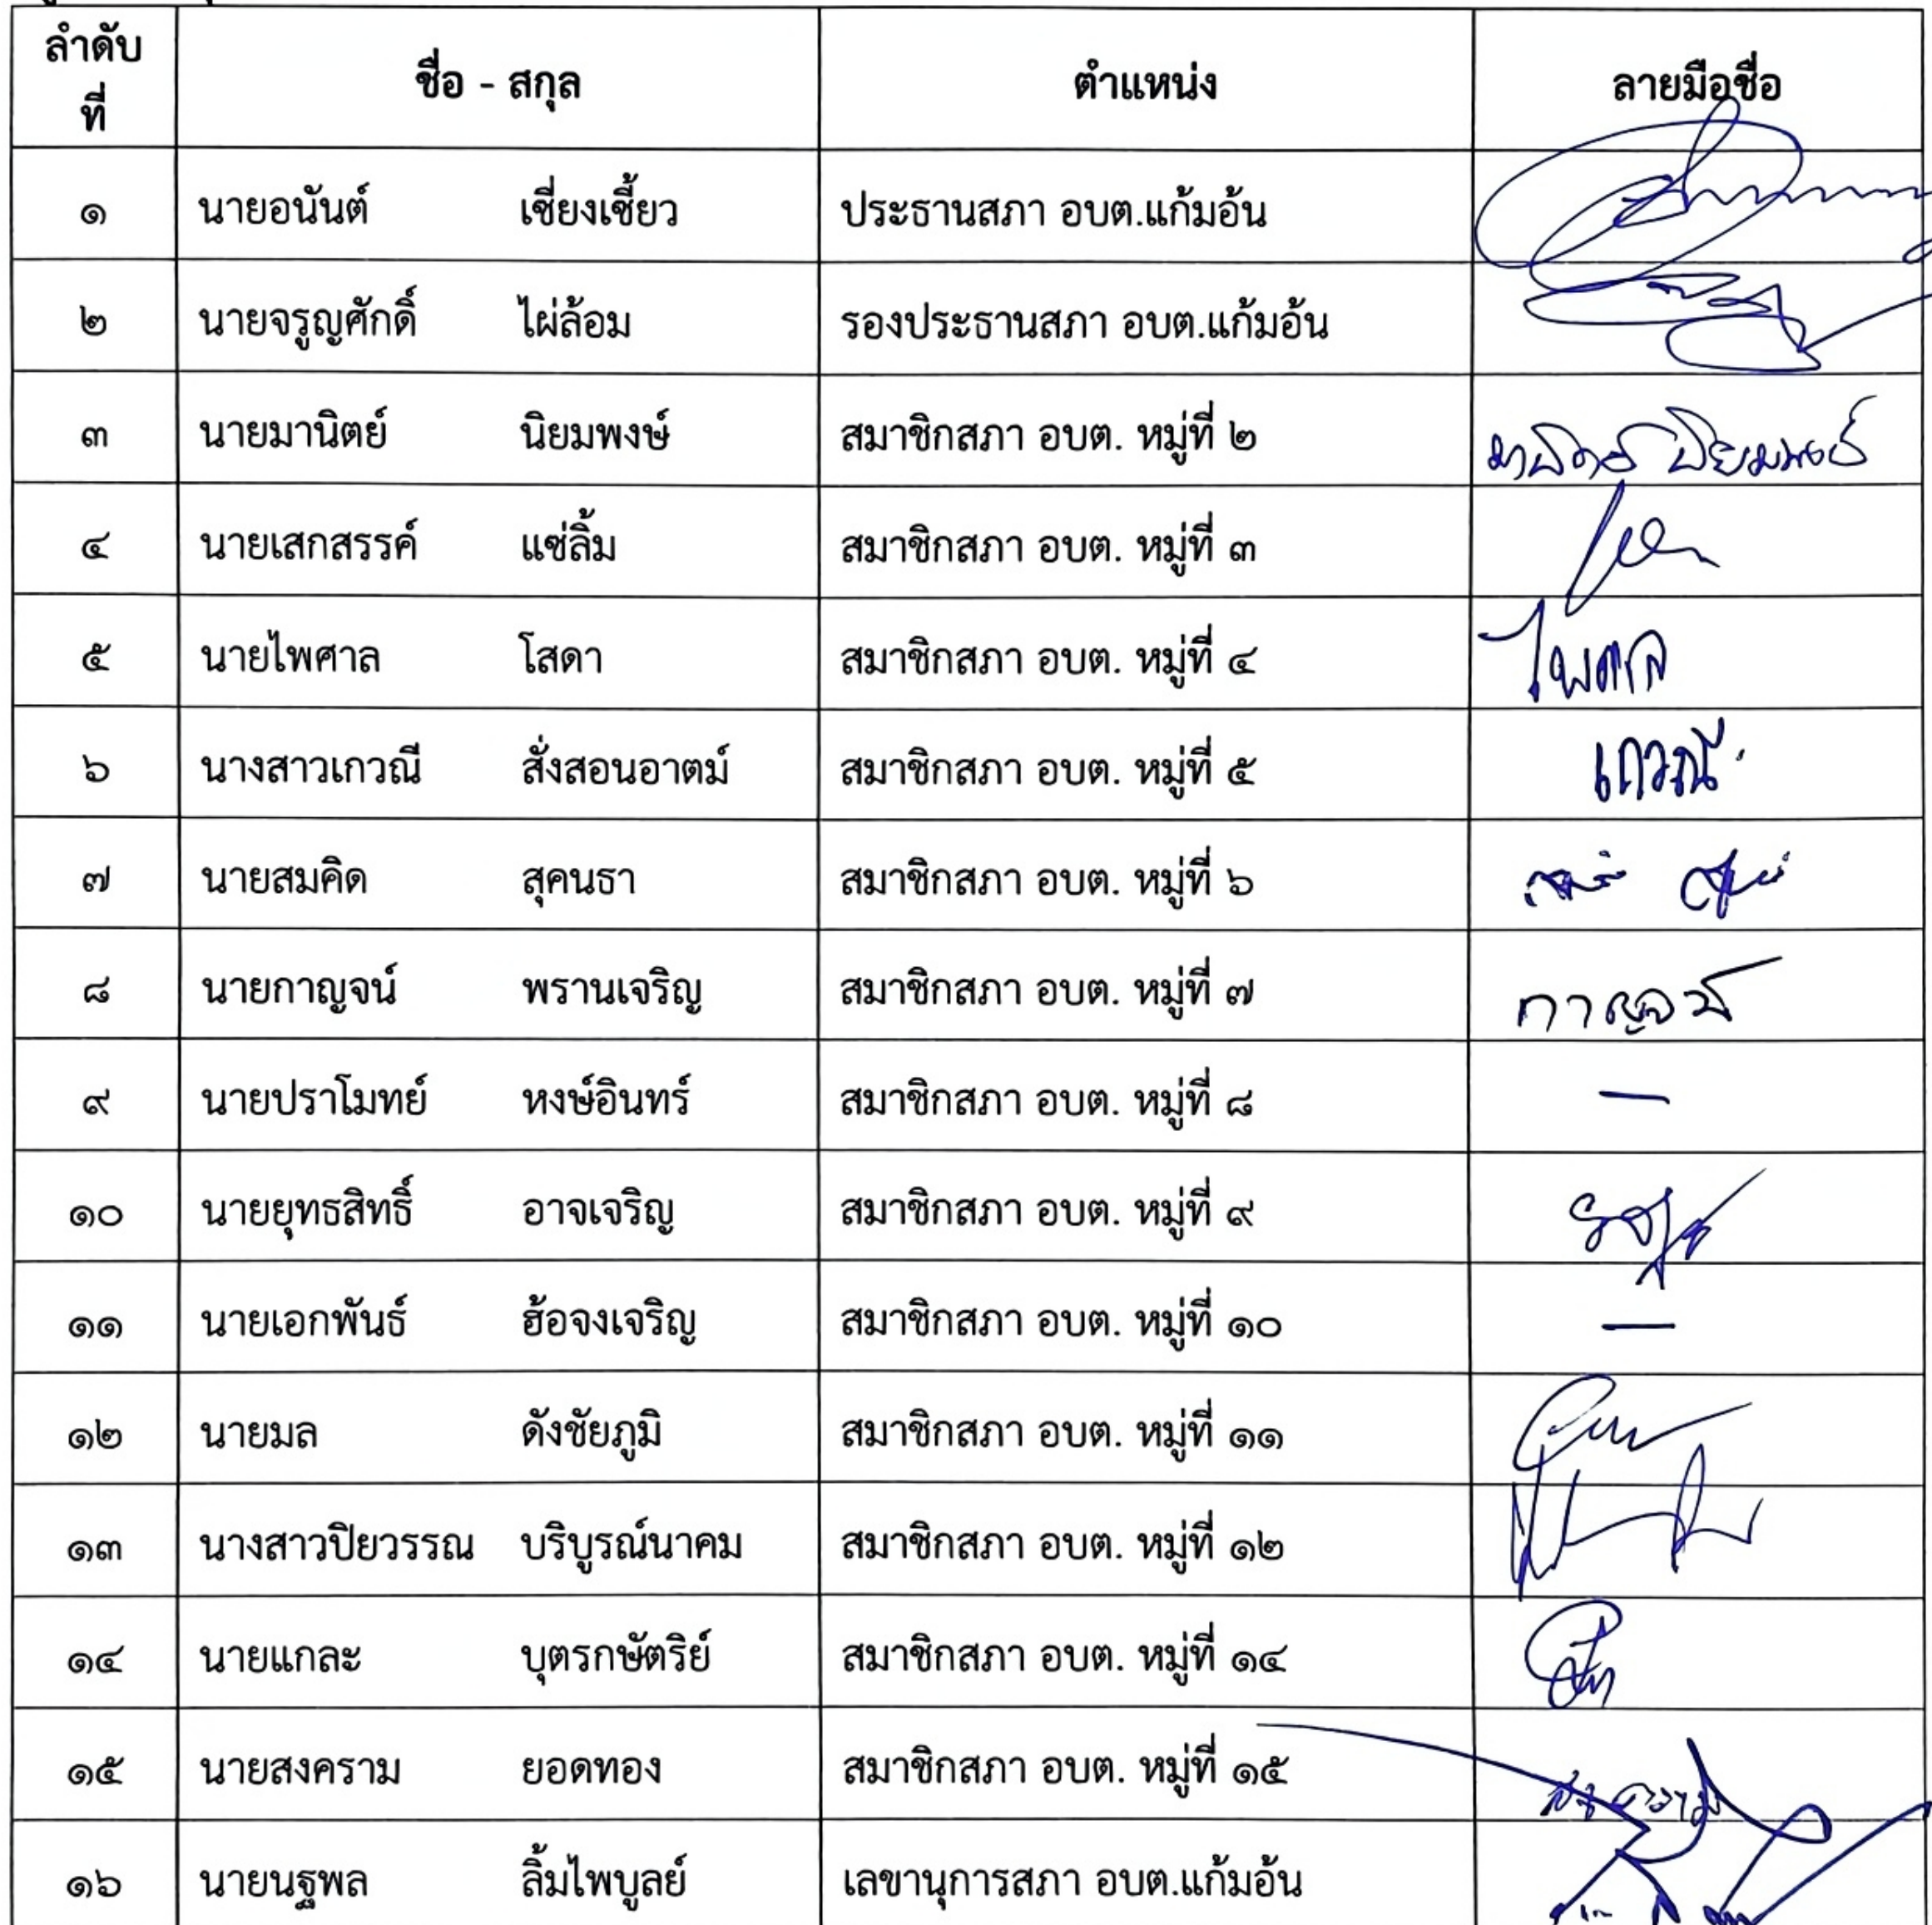 ลำดับ
ที่
ชื่อ - สกุล
ตำแหน่ง
ลายมือชื่อ
๑ นายอนันต์ เชี่ยงเชี้ยว ประธานสภา อบต.แก้มอ้น
๒ นายจรูญศักดิ์ ไผ่ล้อม รองประธานสภา อบต.แก้มอ้น
๓ นายมานิตย์ นิยมพงษ์ สมาชิกสภา อบต. หมู่ที่ ๒ มานิตย์ นิยมพงษ์
๔ นายเสกสรรค์ แซ่ลิ้ม สมาชิกสภา อบต. หมู่ที่ ๓
๕ นายไพศาล โสดา สมาชิกสภา อบต. หมู่ที่ ๔ ไพศาล
๖ นางสาวเกวณี สั่งสอนอาตม์ สมาชิกสภา อบต. หมู่ที่ ๕ เกวณี
๗ นายสมคิด สุคนธา สมาชิกสภา อบต. หมู่ที่ ๖
๘ นายกาญจน์ พรานเจริญ สมาชิกสภา อบต. หมู่ที่ ๗ กาญจน์
๙ นายปราโมทย์ หงษ์อินทร์ สมาชิกสภา อบต. หมู่ที่ ๘ —
๑๐ นายยุทธสิทธิ์ อาจเจริญ สมาชิกสภา อบต. หมู่ที่ ๙
๑๑ นายเอกพันธ์ ฮ้อจงเจริญ สมาชิกสภา อบต. หมู่ที่ ๑๐ —
๑๒ นายมล ดังชัยภูมิ สมาชิกสภา อบต. หมู่ที่ ๑๑
๑๓ นางสาวปิยวรรณ บริบูรณ์นาคม สมาชิกสภา อบต. หมู่ที่ ๑๒
๑๔ นายแกละ บุตรกษัตริย์ สมาชิกสภา อบต. หมู่ที่ ๑๔
๑๕ นายสงคราม ยอดทอง สมาชิกสภา อบต. หมู่ที่ ๑๕ สงคราม
๑๖ นายนฐพล ลิ้มไพบูลย์ เลขานุการสภา อบต.แก้มอ้น